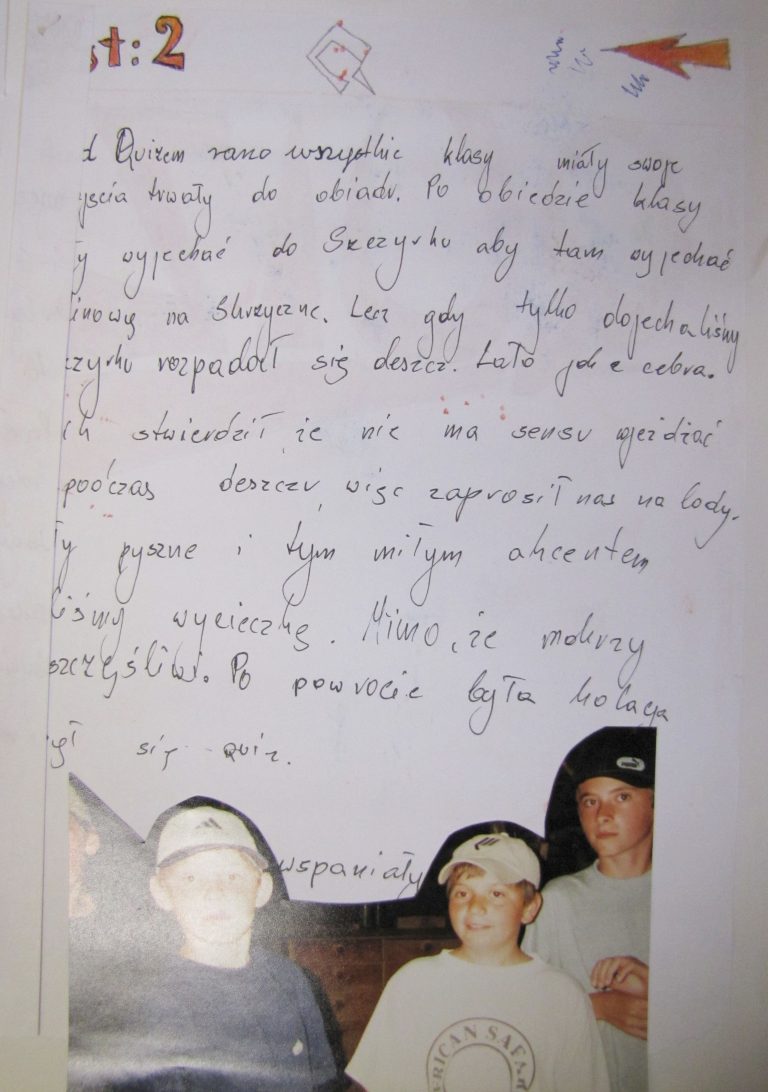 st: 2
d Quizem rano wszystkie klasy miały swoje
yścia trwały do obiadu. Po obiedzie klasy
y wyjechać do Szczyrku aby tam wyjechać
linową na Skrzyczne. Lecz gdy tylko dojechaliśmy
czyrku rozpadał się deszcz. Lało jak z cebra.
stwierdził, że nie ma sensu wjeżdżać
podczas deszczu, więc zaprosił nas na lody.
ły pyszne i tym miłym akcentem
liśmy wycieczkę. Mimo, że mokrzy
szczęśliwi. Po powrocie była kolacja
ył się quiz.
wspaniały
PUMA
RICAN SAFA